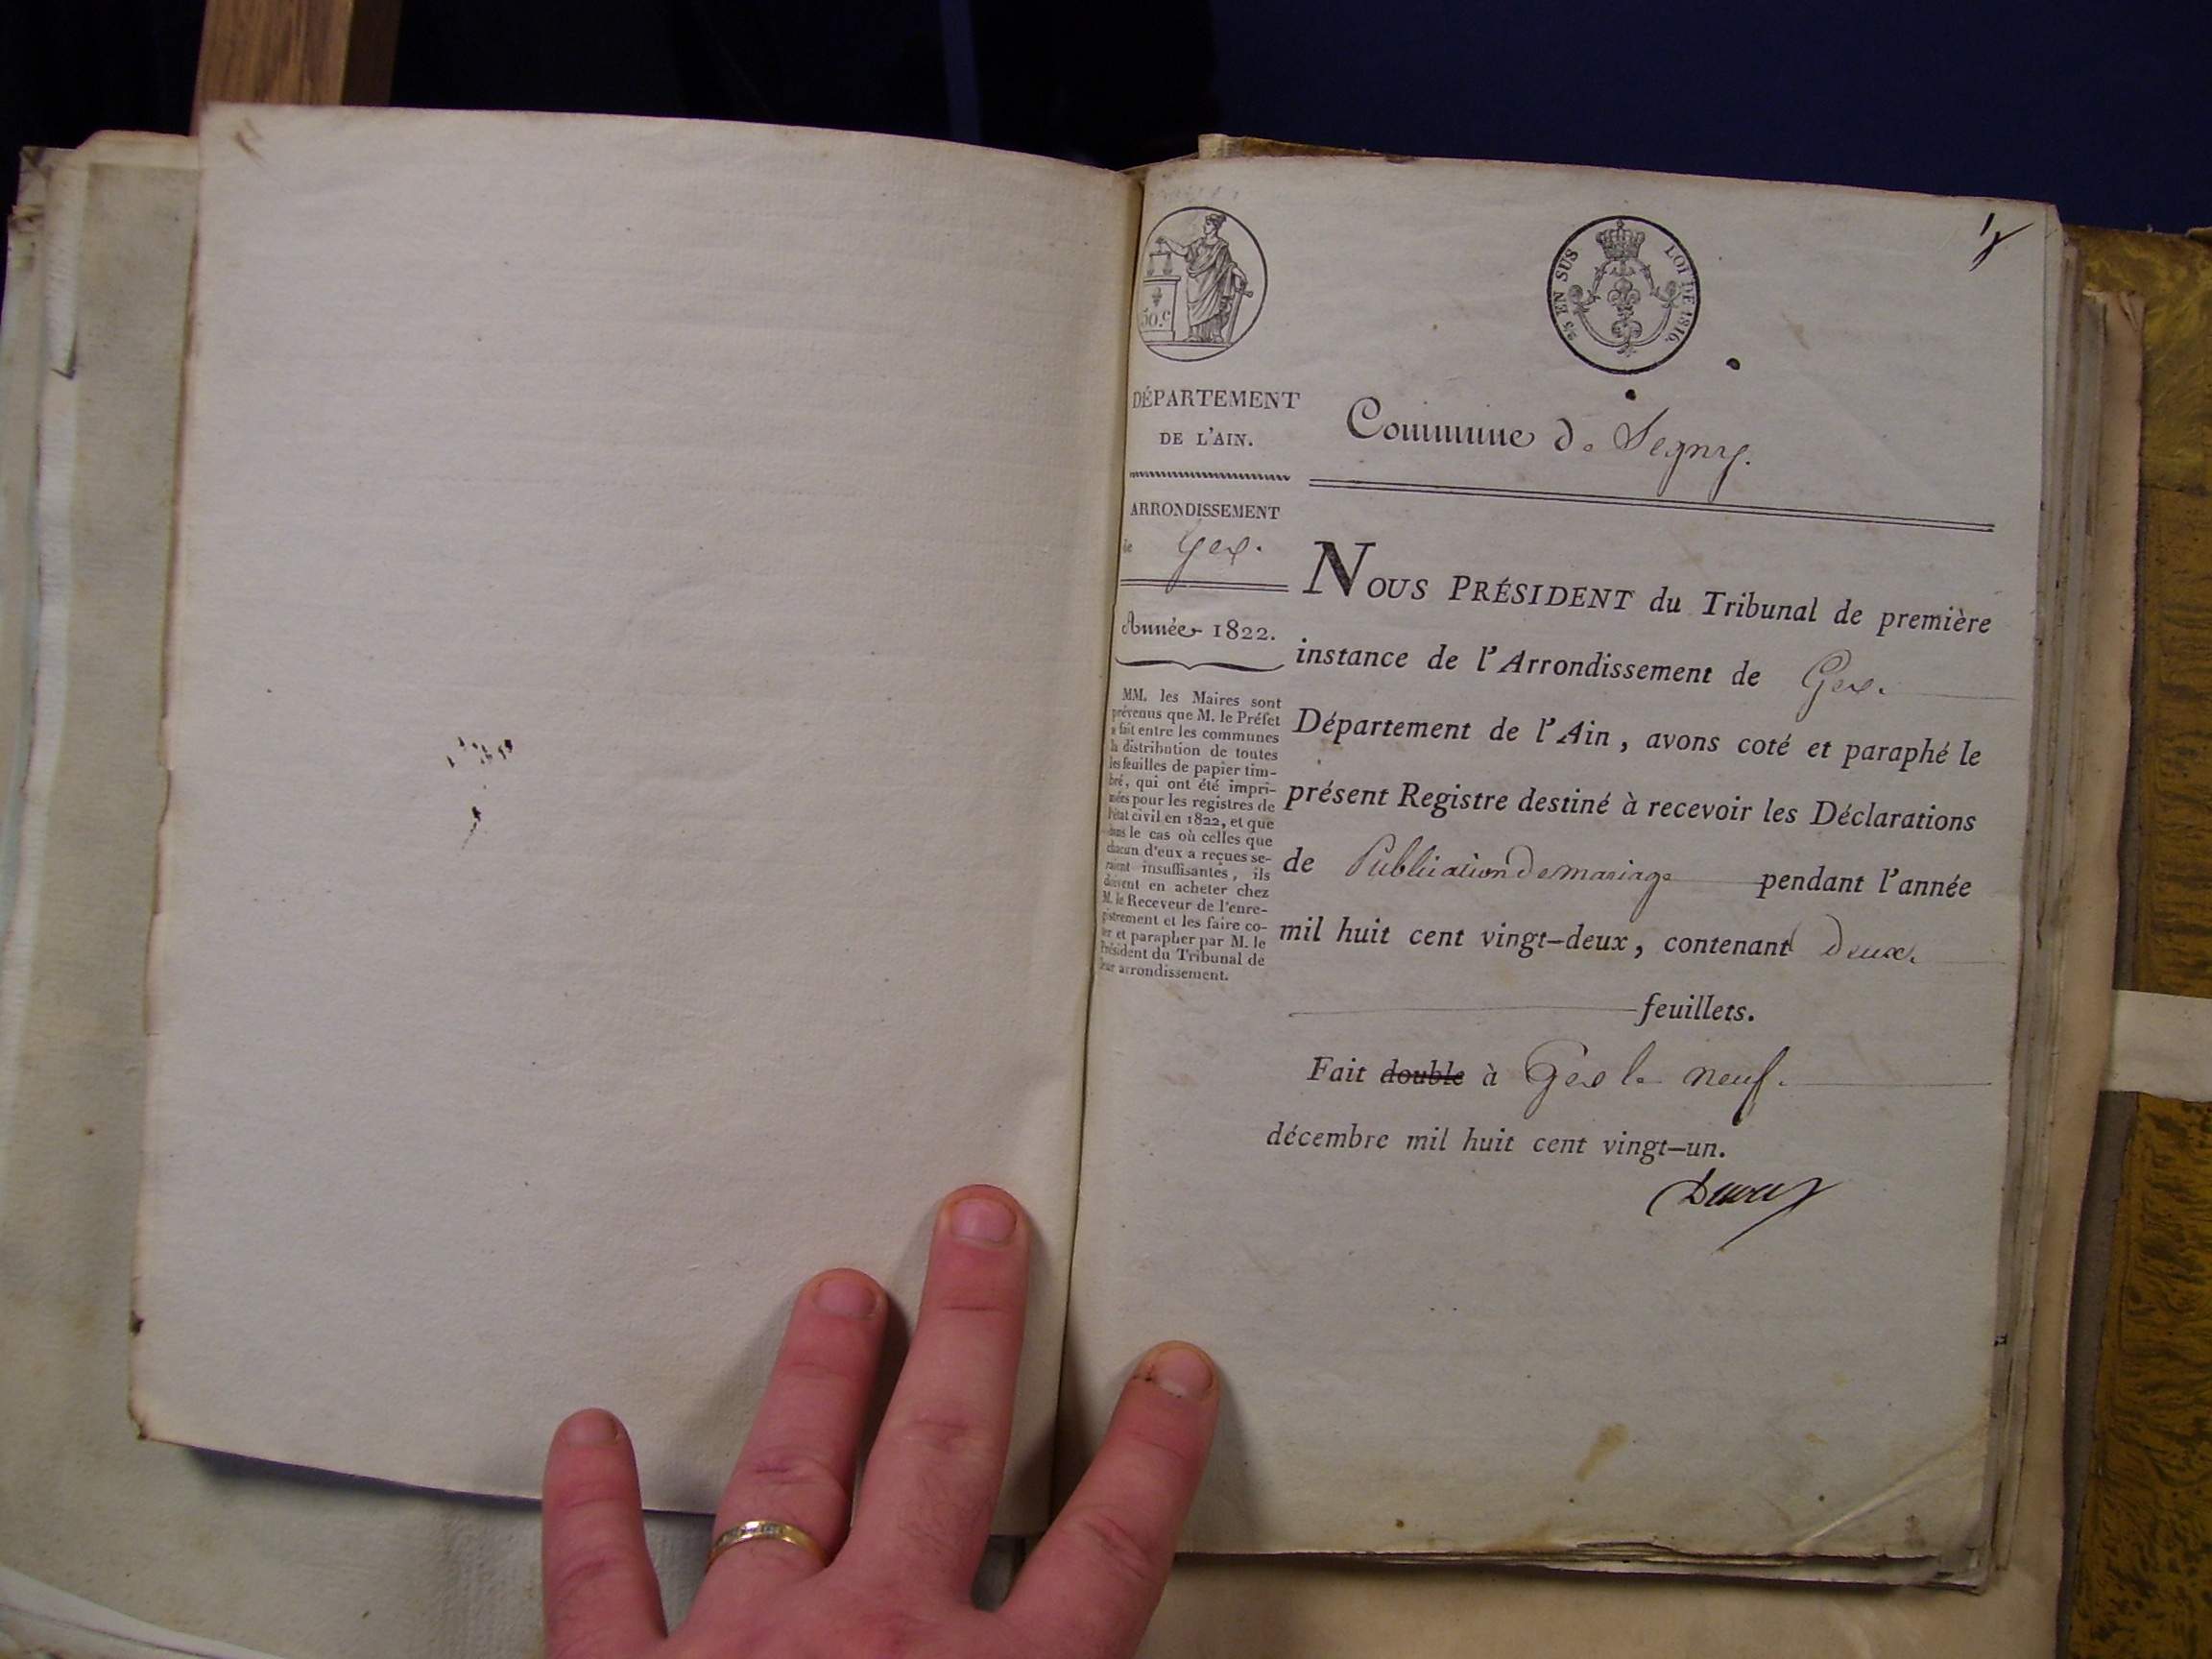 50.c
25 EN SUS LOI DE 1816.
DÉPARTEMENT
DE L'AIN.
ARRONDISSEMENT
de Gex.
Année 1822.
MM. les Maires sont
prévenus que M. le Préfet
a fait entre les communes
la distribution de toutes
les feuilles de papier tim-
bré, qui ont été impri-
mées pour les registres de
l'état civil en 1822, et que
dans le cas où celles que
chacun d'eux a reçues se-
raient insuffisantes, ils
doivent en acheter chez
M. le Receveur de l'enre-
gistrement et les faire co-
ter et parapher par M. le
Président du Tribunal de
leur arrondissement.
Commune de Segny.
NOUS PRÉSIDENT du Tribunal de première
instance de l'Arrondissement de Gex.
Département de l'Ain, avons coté et paraphé le
présent Registre destiné à recevoir les Déclarations
de Publication de mariage pendant l'année
mil huit cent vingt-deux, contenant deux
feuillets.
Fait double à Gex le neuf.
décembre mil huit cent vingt-un.